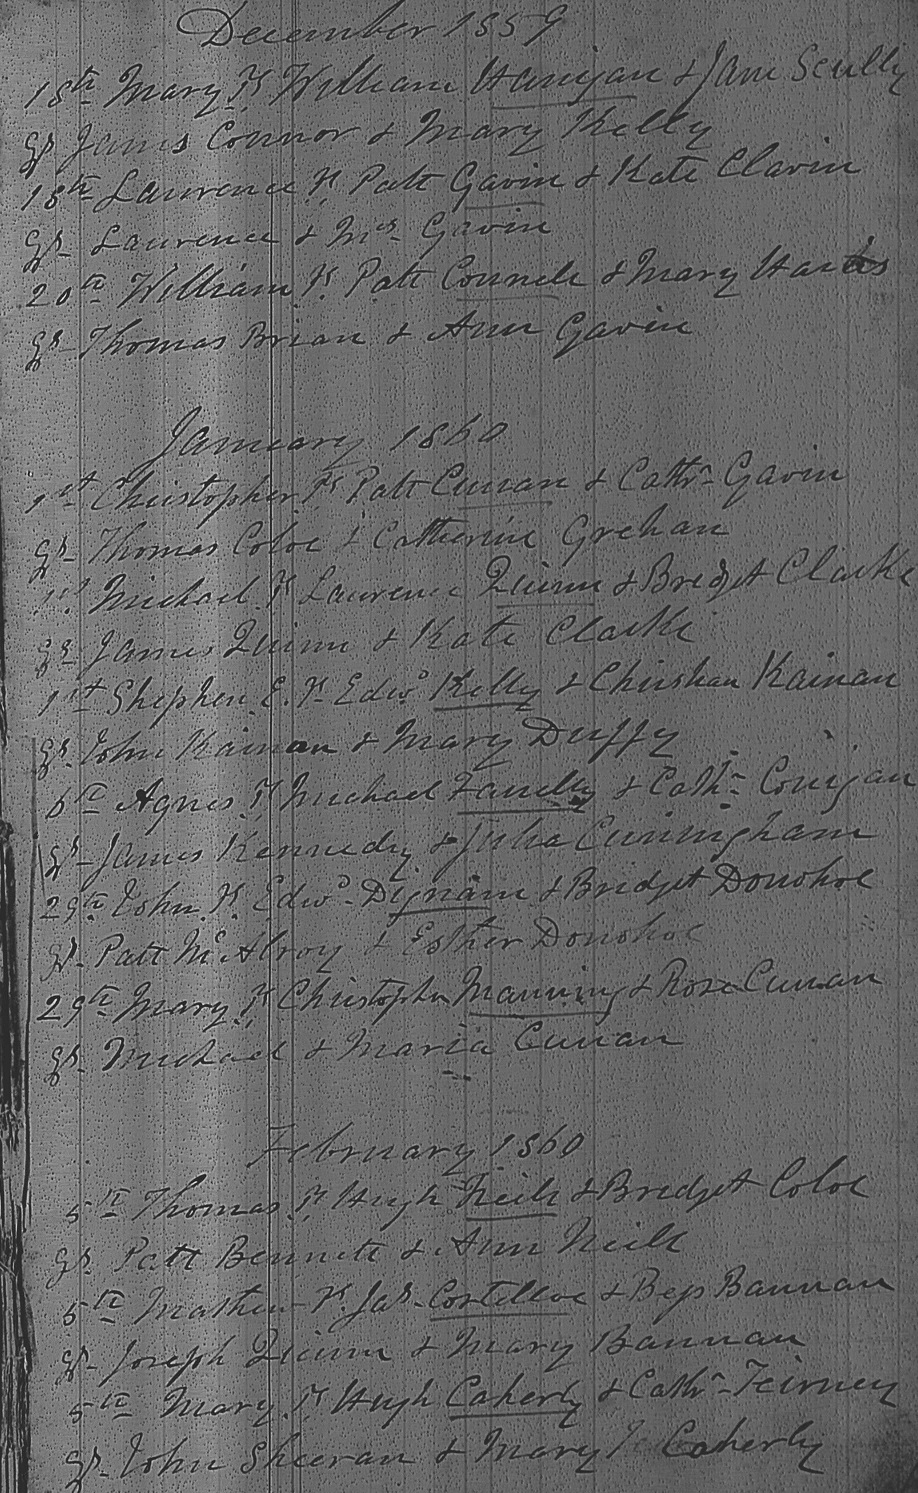 December 1859
18th Mary F. William Hanigan & Jane Scully
gs James Connor & Mary Kelly
18th Laurence F. Patt Gavin & Kate Clavin
gs Laurence & Mrs Gavin
20th William F. Patt Connell & Mary
gs Thomas Brian & Ann Gavin
January 1860
1st Christopher F. Patt Curran & Cathr Gavin
gs Thomas Coloe & Catherine Grehan
1st Michael F. Laurence Quinn & Bredget Clarke
gs James Quinn & Kate Clarke
1st Shephen E. F. Edwd Kelly & Chirshan Kainan
gs John Kainan & Mary Duffy
6th Agnes F. Michael & Cathn Conigan
gs James Kennedy & Julia Cunningham
29th John F. Edwd Dignam & Bridget Donohoe
gs Patt McAlroy & Esther Donohoe
29th Mary F. Christopher Manning & Rose Curran
gs Michael & Maria Curran
February 1860
5th Thomas F. Hugh Neill & Bredget Coloe
gs Patt Bennett & Ann Neill
5th Mathew F. Jas Costelloe & Bess Bannan
gs Joseph Quinn & Mary Bannan
5th Mary F. Hugh Caherly & Cathr Feirney
gs John Sheeran & Mary Caherly